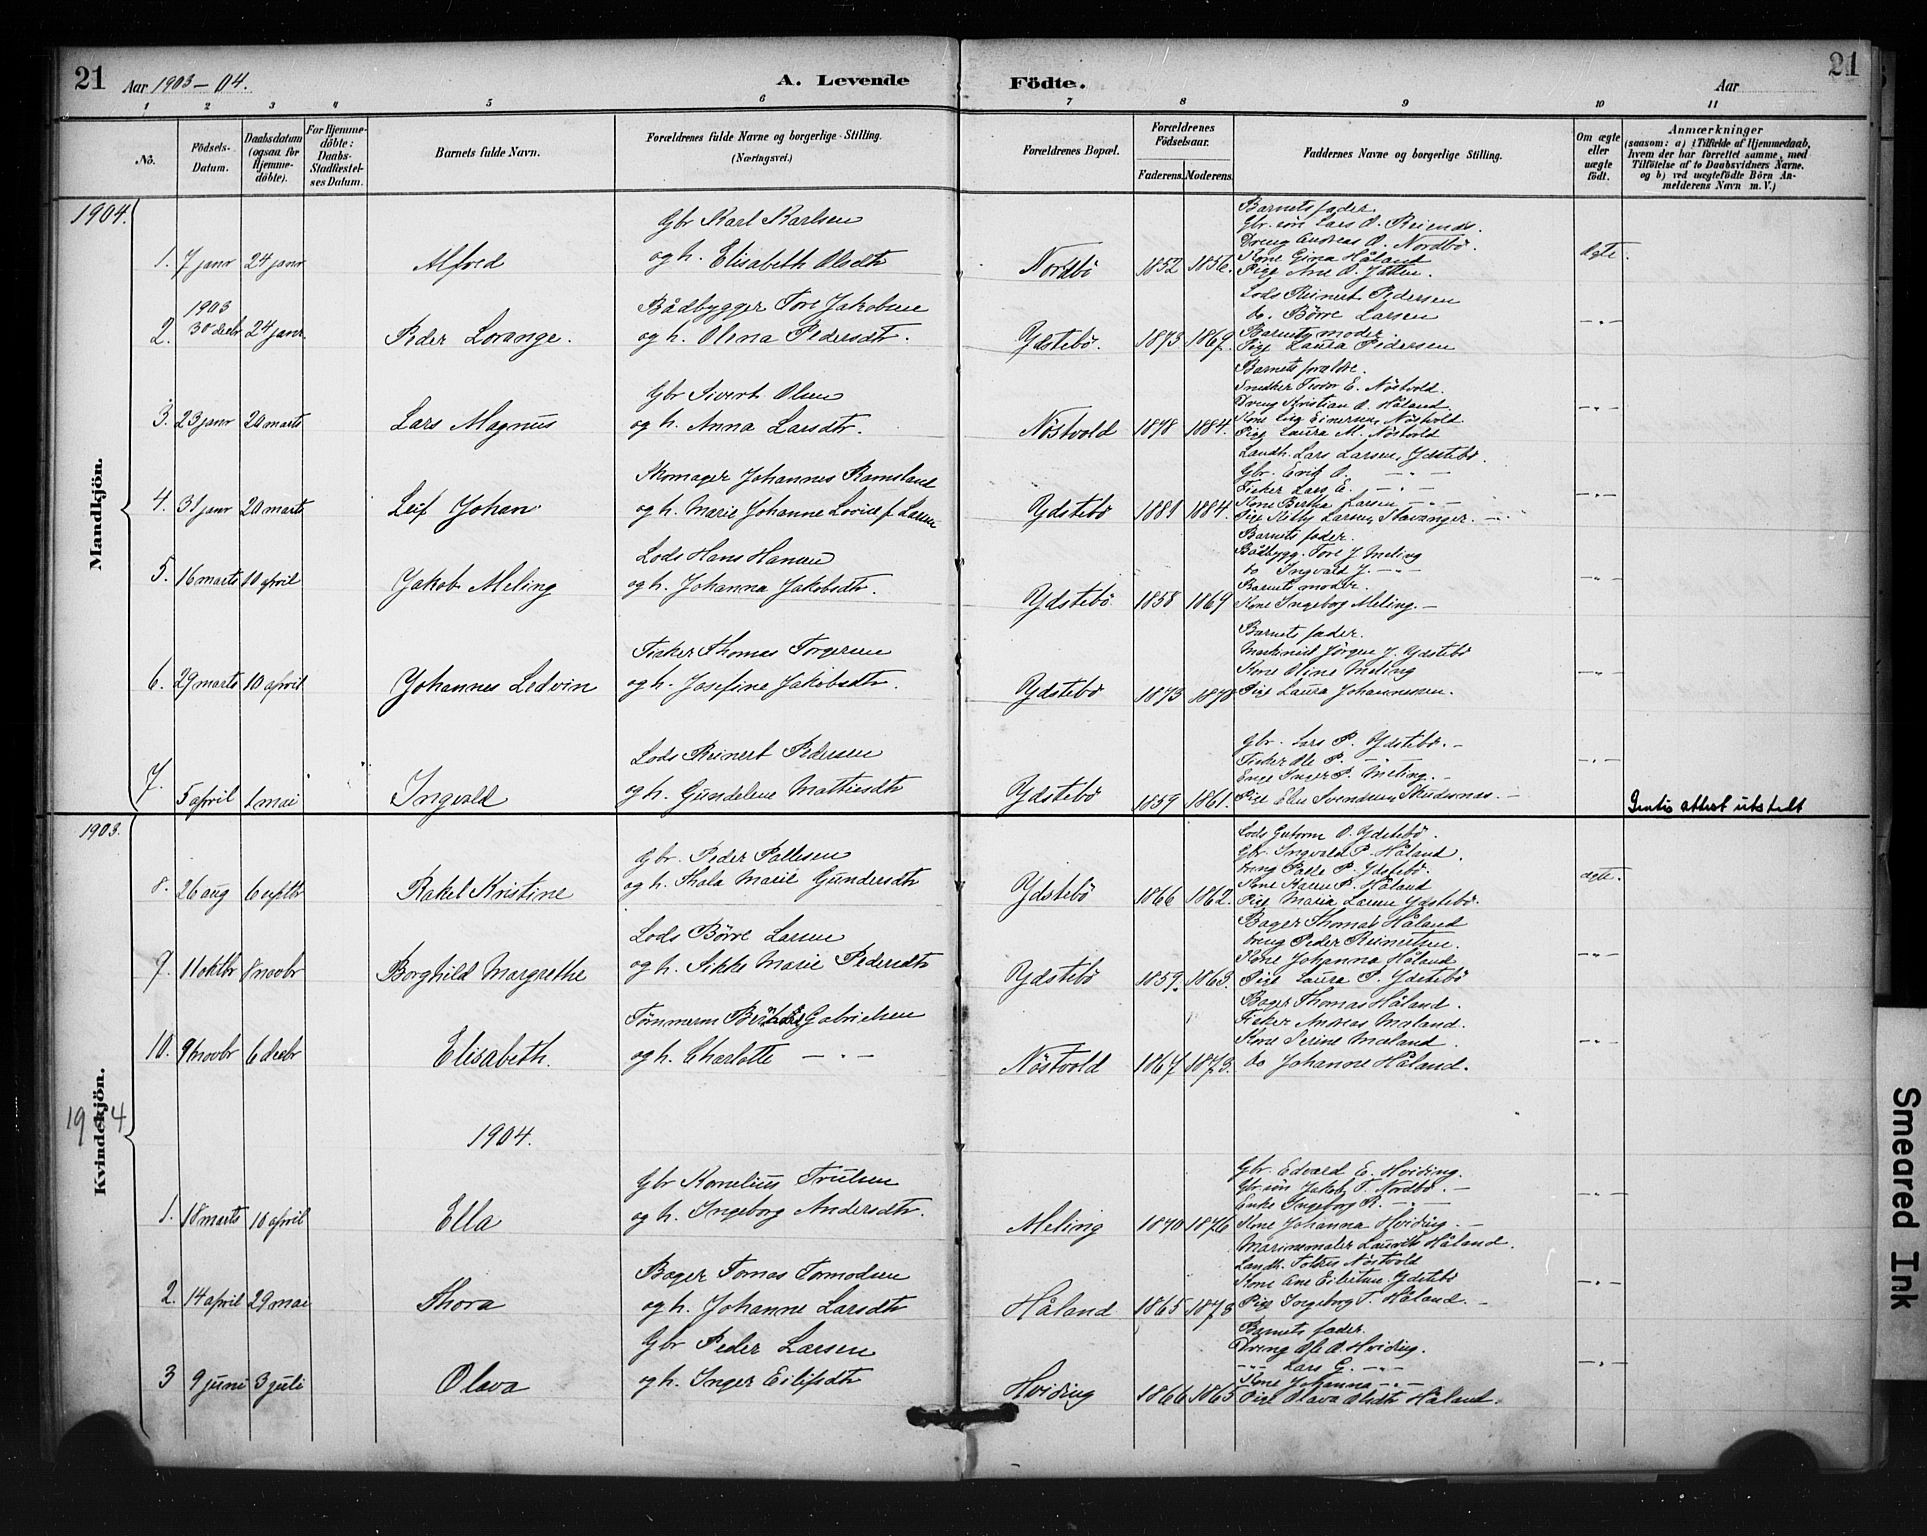 21 Aar 1903-04. A. Levende Födte. Aar 21
1 2 3 4 5 6 7 8 9 10 11
No. Födsels-Datum. Daabsdatum (ogsaa for Hjemme-döbte). For Hjemme-döbte: Daabs-Stadfæstel-ses Datum. Barnets fulde Navn. Forældrenes fulde Navne og borgerlige Stilling. (Næringsvei.) Forældrenes Bopæl. Forældrenes Födselsaar. Faderens. Moderens. Faddernes Navne og borgerlige Stilling. Om ægte eller uægte födt. Anmærkninger (saasom: a) i Tilfælde af Hjemmedaab, hvem der har forrettet samme, med Tilföielse af to Daabsvidners Navne. og b) ved uægtefödte Börn An-melderens Navn m. V.)
1904.
Mandkjön.
1. 7 janr 24 janr Alfred Gbr Karl Karlsen
og h. Elisabeth Olsdtr Nordbö 1852 1856. Barnets fader
Gbr. sön Lars O. Reiends.
Dreng Andreas O. Nordbö.
Kone Gina Håland
Pige Ane O. Jåtten. ægte.
2. 1903 30 decbr 24 janr. Peder Lorange. Bådbygger Tore Jakobsen
og h. Olena Pedersdtr. Ydstebö. 1873 1869. Lods Reinert Pedersen
do. Börre Larsen
Barnets moder.
Pige Laura Pedersen -"-
3. 23 janr 20 marts Lars Magnus Gbr Sivert Olsen
og h. Anna Larsdtr. Nöstvold 1878 1884. Barnets forældre.
Snedker Teodor E. Nöstvold.
Dreng Kristian O. Håland
Kone Einersen, Nöstvold
Pige Laura M. Nöstvold -"-
4. 31 janr 20 marts Leif Johan Skomager Johannes Ramsland
og h. Marie Johanne Lovise f. Larsen Ydstebö 1881 1884. Landh. Lars Larsen, Ydstebö.
Gbr. Erik O. -"-
Fisker Lars E. -"-
Kone Bertha Larsen -"-
Pige Kitty Larsen, Stavanger. -"-
5. 16 marts 10 april Jakob Meling Lods Hans Hansen
og h. Johanna Jakobsdtr. Ydstebö 1858 1869 Barnets fader.
Bådbygg. Tore J. Meling
do Ingvald J. -"-
Barnets moder.
Kone Ingeborg Meling. -"-
6. 29 marts 10 april Johannes Ledvin Fisker Thomas Torgersen
og h. Josefine Jakobsdtr. Ydstebö 1873 1870 Barnets fader.
Jörgen J. Ydstebö
Kone Oline Meling
Pige Laura Johannesen. -"-
7. 5 april 1 mai Ingvald Lods Reinert Pedersen
og h. Gundelene Mathiesdtr Ydstebö 1859 1861. Gbr. Lars P. Ydstebö.
Fisker Ole P. -"-
Enge Inger P. Meling.
Pige Elen Svendsen, Skudesnas. -"- Gratis attest utstedt
1903.
Kvindekjön.
8. 26 aug 6 septbr Rakel Kristine Gbr. Peder Pallesen
og h. Thala Marie Gundersdtr Ydstebö 1866 1862. Lods Guttorm O. Ydstebö.
Gbr. Ingvald P. Håland.
Dreng Palle P. Ydstebö.
Kone Karen P. Håland
Pige Maria Larsen Ydstebö. ægte.
9. 11 oktbr 8 novbr Borghild Margrethe Lods Börre Larsen
og h. Sikke Marie Pedersdtr Ydstebö 1859. 1863. Bager Thomas Håland
Dreng Peder Reinertsen.
Kone Johanna Håland
Pige Laura P. Ydstebö -"-
10. 9 novbr 6 decbr Elisabeth. Tömmerm Gabrielsen
og h. Charlotte -"- Nöstvold 1867 1873. Bager Thomas Håland.
Fisker Andreas Mæland.
Kone Serine Mæland.
do Johanne Håland. -"-
1904
1904.
1. 18 marts 10 april Ella Gbr Kornelius Trulsen
og h. Ingeborg Andersdtr. Meling 1870 1876 Gbr. Edvard E. Hviding.
Gbr sön Jakob T. Nordbö. -
Enke Ingeborg R. -"-
Kone Johanna Hviding. -"-
2. 14 april 29 mai Thora Bager Tomas Tormodsen
og h. Johanne Larsdtr Håland 1865 1873 Laurits Håland.
Landh. Nöstvold
Kone Ane Eilertsen Ydstebö
Pige Ingeborg T. Håland. -"-
3 9 juni 3 juli Olava Gbr Peder Larsen
og h. Inger Eilifsdtr Hviding 1866 1865 Barnets fader.
Dreng Ole O. Hviding.
-"- Lars E. -"-
Kone Johanna -"-
Pige Olava Olsdtr Håland. -"-
Smeared Ink